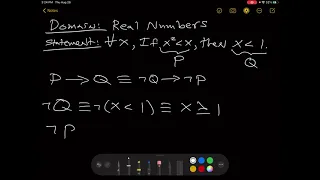 2:34 PM Thu Aug 20
Domain: Real Numbers
Statement: ∀x, If x²<x, then x<1.
P Q
P→Q≡¬Q→¬P
¬Q≡¬(x<1)≡x≥1
¬P